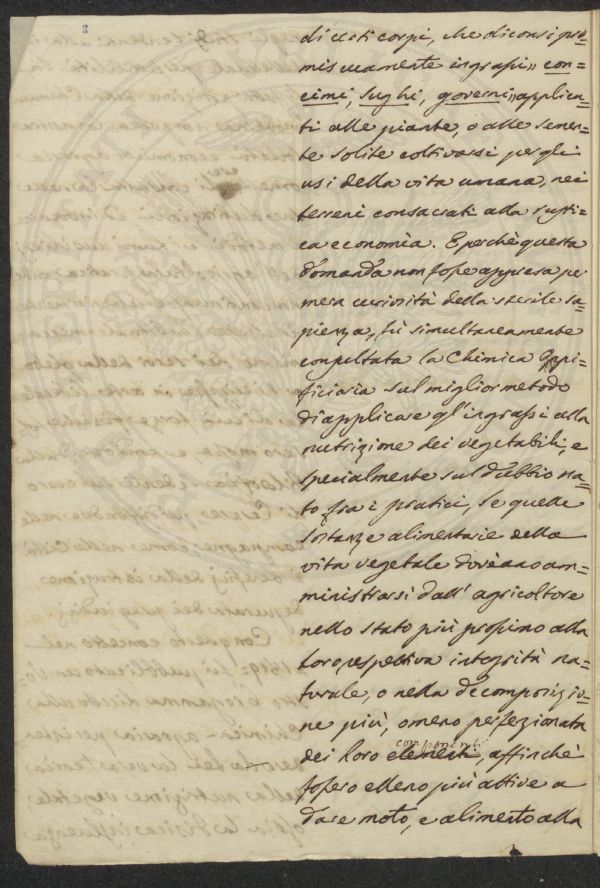 di certi corpi, che diconsi pro=
miscuamente ingrassi „ con=
cimi, sughi, governi „ applica=
ti alle piante, o alle semen=
te solite coltivarsi per gli
usi della vita umana, nei
terreni consacrati alla rusti=
ca economia. E perchè questa
domanda non fosse appresa per
mera curiosità della sterile sa=
pienza, fù simultaneamente
consultata la Chimica
ficiaria sul miglior metodo
di applicare gl'ingrassi alla
nutrizione dei vegetabili, e
specialmente sul dubbio na=
to fra i pratici, se quelle
sostanze alimentarie della
vita vegetale dovèano am=
ministrarsi dall'agricoltore
nello stato più prossimo alla
loro respettiva integrità na=
turale, o nella decomposizio=
ne più, o meno perfezionata
dei loro componenti, affinchè
fossero elleno più attive a
dare moto, e alimento alla